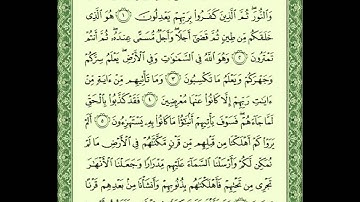 وَالنُّورَ ثُمَّ الَّذِينَ كَفَرُوا بِرَبِّهِمْ يَعْدِلُونَ ١ هُوَ الَّذِي
خَلَقَكُم مِّن طِينٍ ثُمَّ قَضَىٰ أَجَلًا وَأَجَلٌ مُّسَمًّى عِندَهُ ثُمَّ أَنتُمْ
تَمْتَرُونَ ٢ وَهُوَ اللَّهُ فِي السَّمَاوَاتِ وَفِي الْأَرْضِ يَعْلَمُ سِرَّكُمْ
وَجَهْرَكُمْ وَيَعْلَمُ مَا تَكْسِبُونَ ٣ وَمَا تَأْتِيهِم مِّنْ ءَايَةٍ مِّنْ
ءَايَاتِ رَبِّهِمْ إِلَّا كَانُوا عَنْهَا مُعْرِضِينَ ٤ فَقَدْ كَذَّبُوا بِالْحَقِّ
لَمَّا جَاءَهُمْ فَسَوْفَ يَأْتِيهِمْ أَنبَاءُ مَا كَانُوا بِهِ يَسْتَهْزِءُونَ ٥ أَلَمْ
يَرَوْا كَمْ أَهْلَكْنَا مِن قَبْلِهِم مِّن قَرْنٍ مَّكَّنَّاهُمْ فِي الْأَرْضِ مَا لَمْ
نُمَكِّن لَّكُمْ وَأَرْسَلْنَا السَّمَاءَ عَلَيْهِم مِّدْرَارًا وَجَعَلْنَا الْأَنْهَارَ
تَجْرِي مِن تَحْتِهِمْ فَأَهْلَكْنَاهُم بِذُنُوبِهِمْ وَأَنشَأْنَا مِن بَعْدِهِمْ قَرْنًا